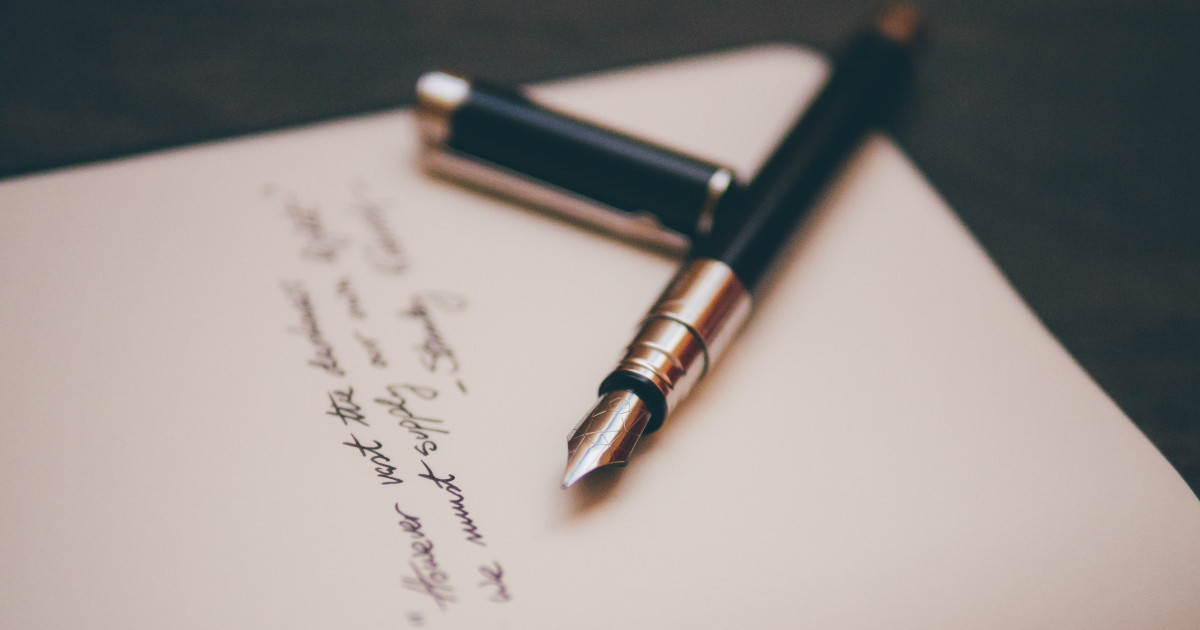 "However vast the darkness
we must supply our own light."
- Stanley Kubrick